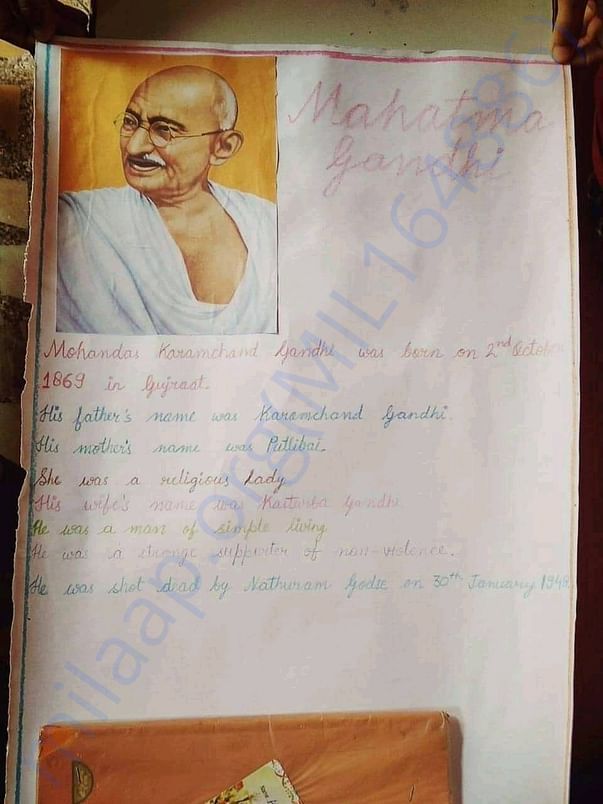 Mahatma
Gandhi
Mohandas Karamchand Gandhi was born on 2nd October
1869 in Gujraat.
His father's name was Karamchand Gandhi.
His mother's name was Putlibai.
She was a religious lady
His wife's name was Kasturba Gandhi
He was a man of simple living
He was a stronge supporter of non-violence.
He was shot dead by Nathuram Godse on 30th January 1948
milaap.org(MIL164886)